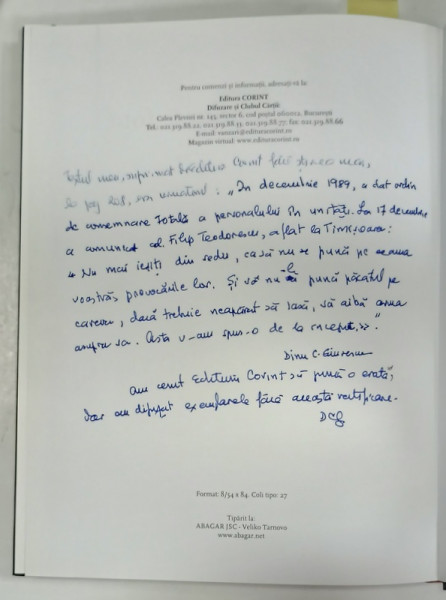 Pentru comenzi și informații, adresați-vă la:
Editura CORINT
Difuzare și Clubul Cărții:
Calea Plevnei nr. 145, sector 6, cod poștal 060012, București
Tel.: 021.319.88.22, 021.319.88.33, 021.319.88.77; fax: 021.319.88.66
E-mail: vanzari@edituracorint.ro
Magazin virtual: www.edituracorint.ro
Textul meu, suprimat Corint fără știrea mea,
la pag 208, : „In decembrie 1989, a dat ordin
de consemnare totală a personalului în unități. La 17 decembrie
a anunțat col. Filip Teodorescu, aflat la Timișoara:
« Nu mai ieșiți din sediu, ca să nu se pună pe seama
voastră provocările lor. Și să nu -și pună păcatul pe
careva, dacă trebuie neapărat să iasă, să aibă arma
asupra sa. Asta v-am spus-o de la început.»."
Dinu C. Giurescu
Am cerut Editurii Corint să pună o erată,
dar au difuzat exemplarele fără această rectificare.
DCG
Format: 8/54×84. Coli tipo: 27
Tipărit la:
ABAGAR JSC - Veliko Tarnovo
www.abagar.net